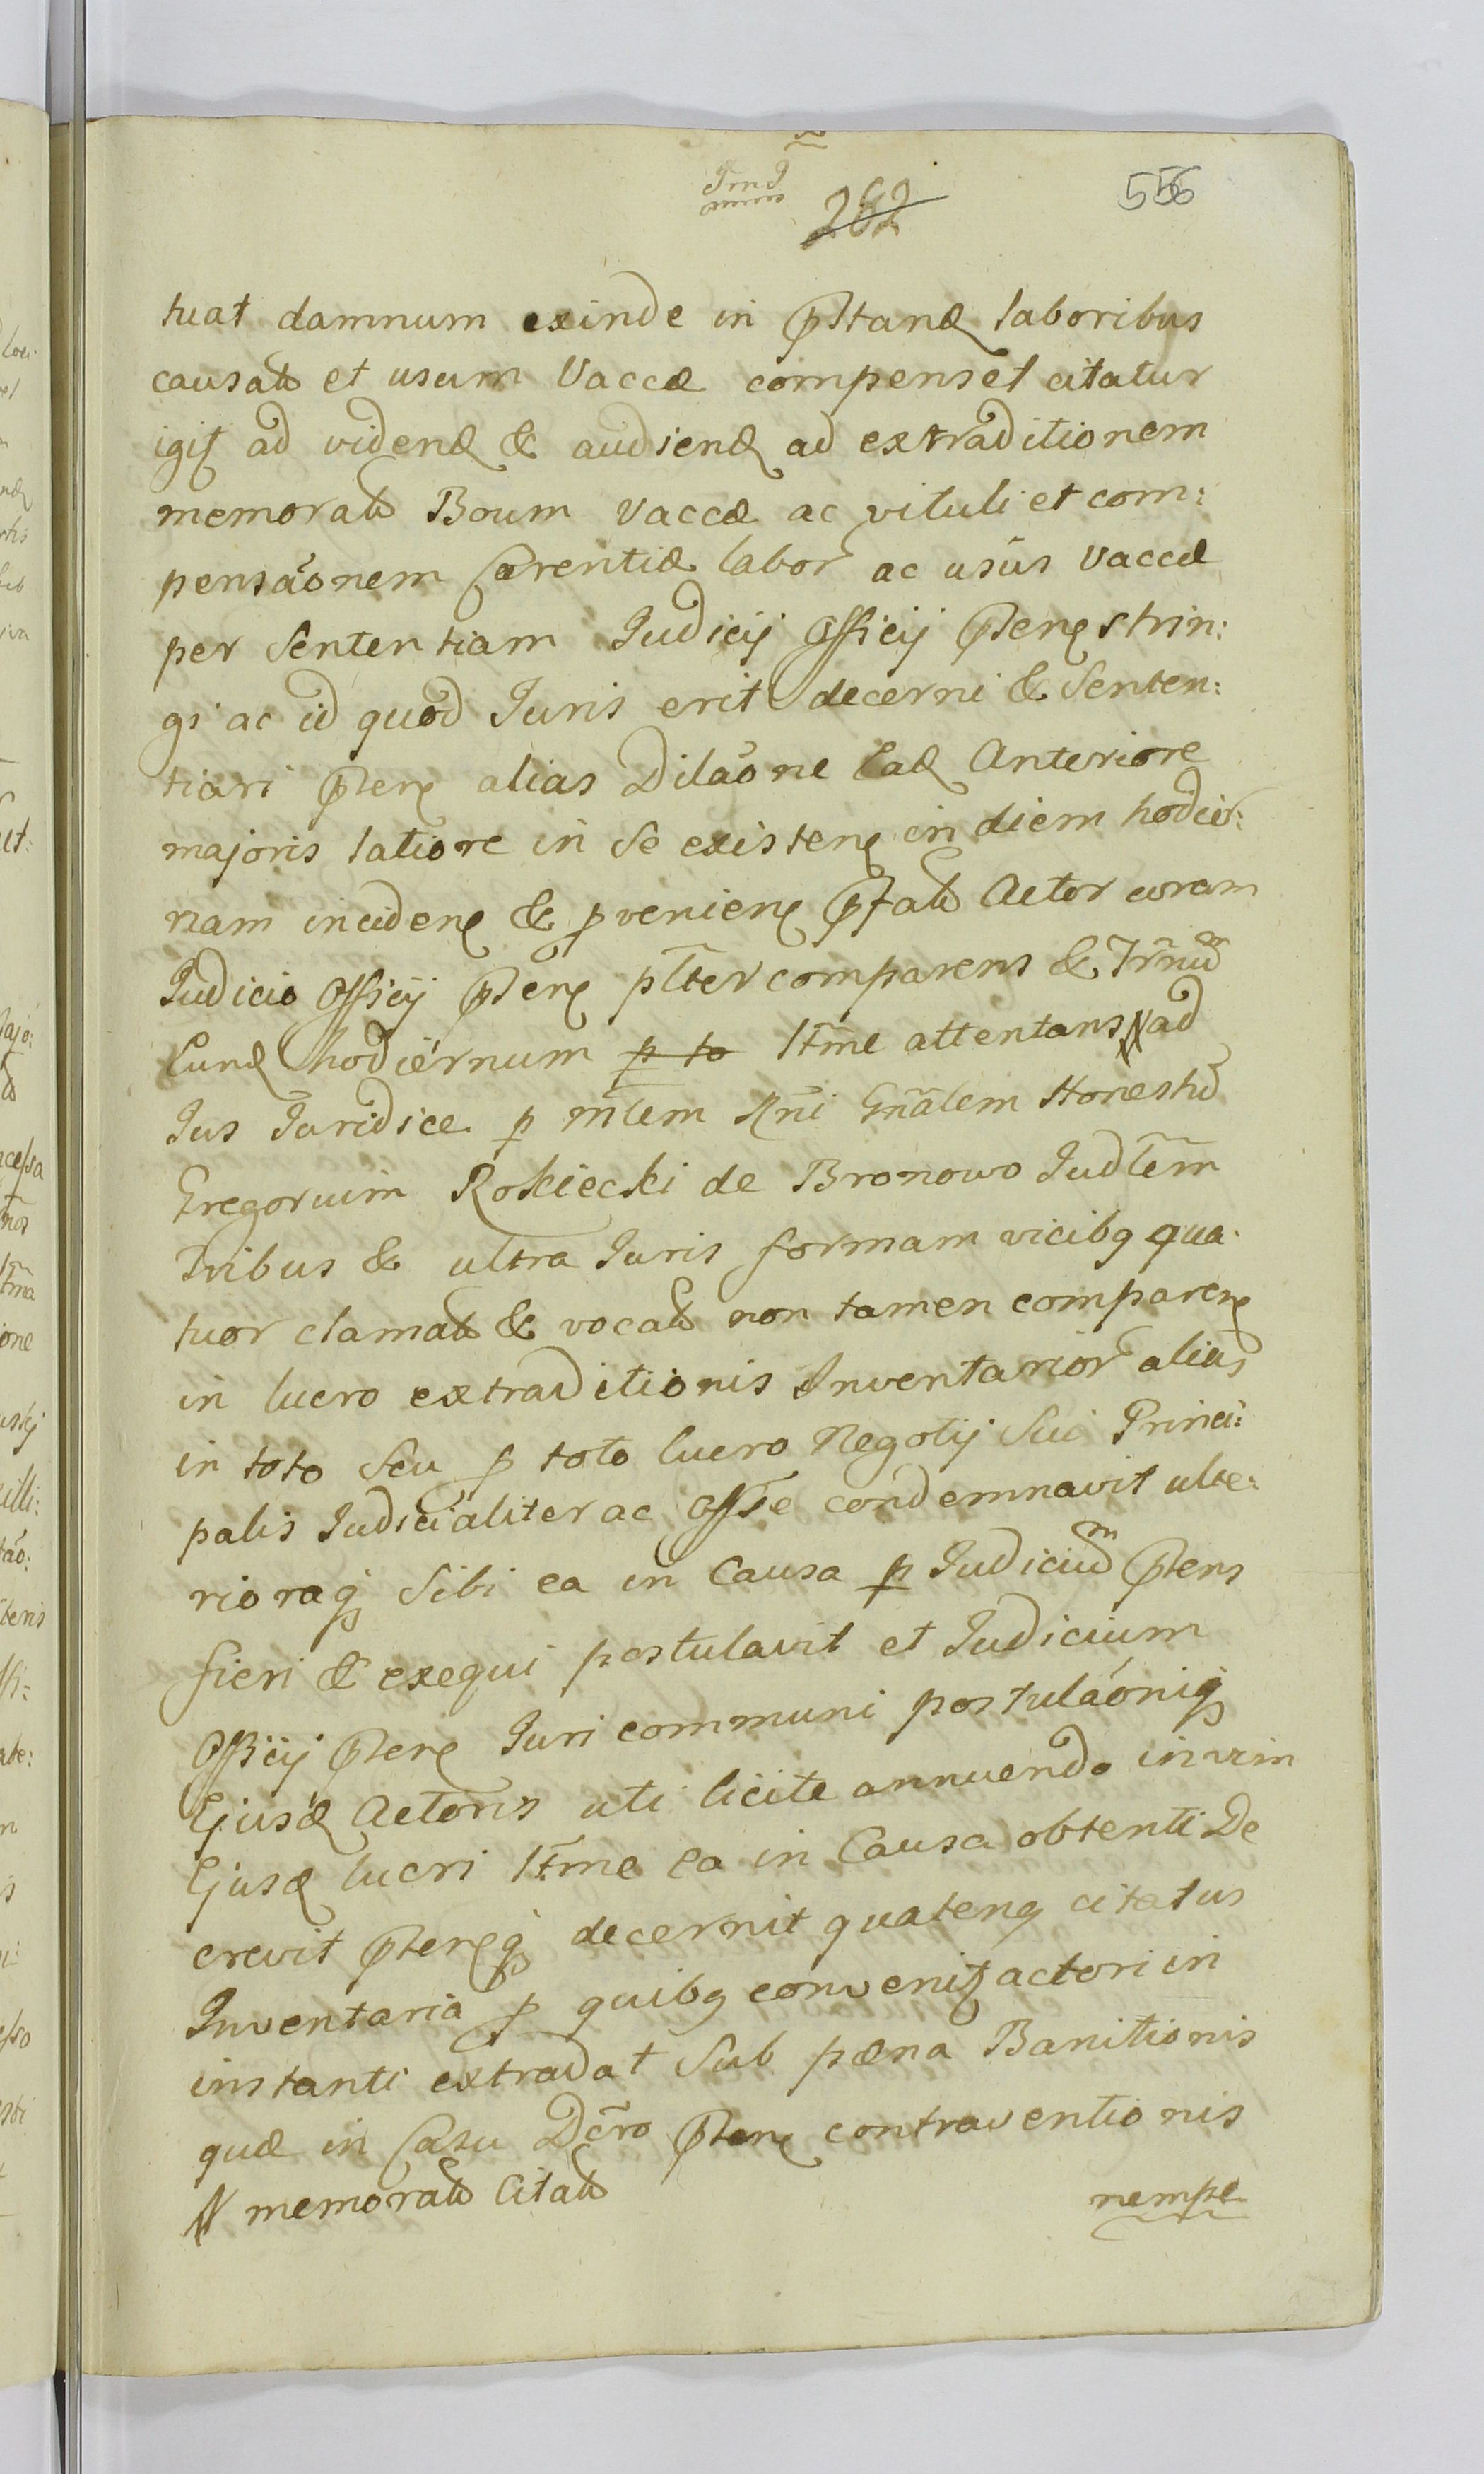 556
262
tuat damnum exinde in Pstand laboribus
causat et usum Vaccæ compenset citatur
igit ad vidend & audiend ad extraditionem
memorat Boum vaccæ ac vituli et com:
pensãonem carentiæ labor ac usûs vaccæ
per sententiam Judicij Officij Pten strin:
gi ac id quod Juris erit decerni & senten:
tiari Pten alias Dilãone Ead Anteriore
majoris latiore in se existen in diem hodier:
nam inciden & pvenien Pfat Actor coram
Judicio Officij Pten plter comparens & Trñum
Eund hodiernum p to ltme attentans N ad
Jus Juridice p mlem Rñi Gñalem Honestũ
Gregorium Rokiecki de Bronowo Judlem
Tribus & ultra Juris formam vicibq qua:
tuor clamat & vocat non tamen comparen
in lucro extraditionis Inventarior alias
in toto seu p toto lucro Negotij sui Princi:
palis Judicialiter ac Offle condemnavit ulte:
rioraq sibi ea in Causa p Judicium Ptens
fieri & exequi postulavit et Judicium
Officij Pten Juri communi postulãoniq
Ejusd Actoris uti licite annuendo in vim
Ejusd lucri ltme ea in Causa obtenti De
crevit Ptenq decernit quatenq citatus
Inventaria p quibq convenit actori in
instanti extradat sub pæna Banitionis
quæ in casu Dcro Pten contraventionis
N memorat Citat
nempe